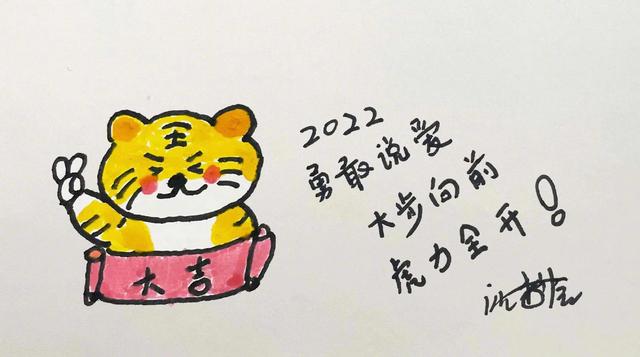 大吉
2022
勇敢说爱
大步向前
虎力全开！